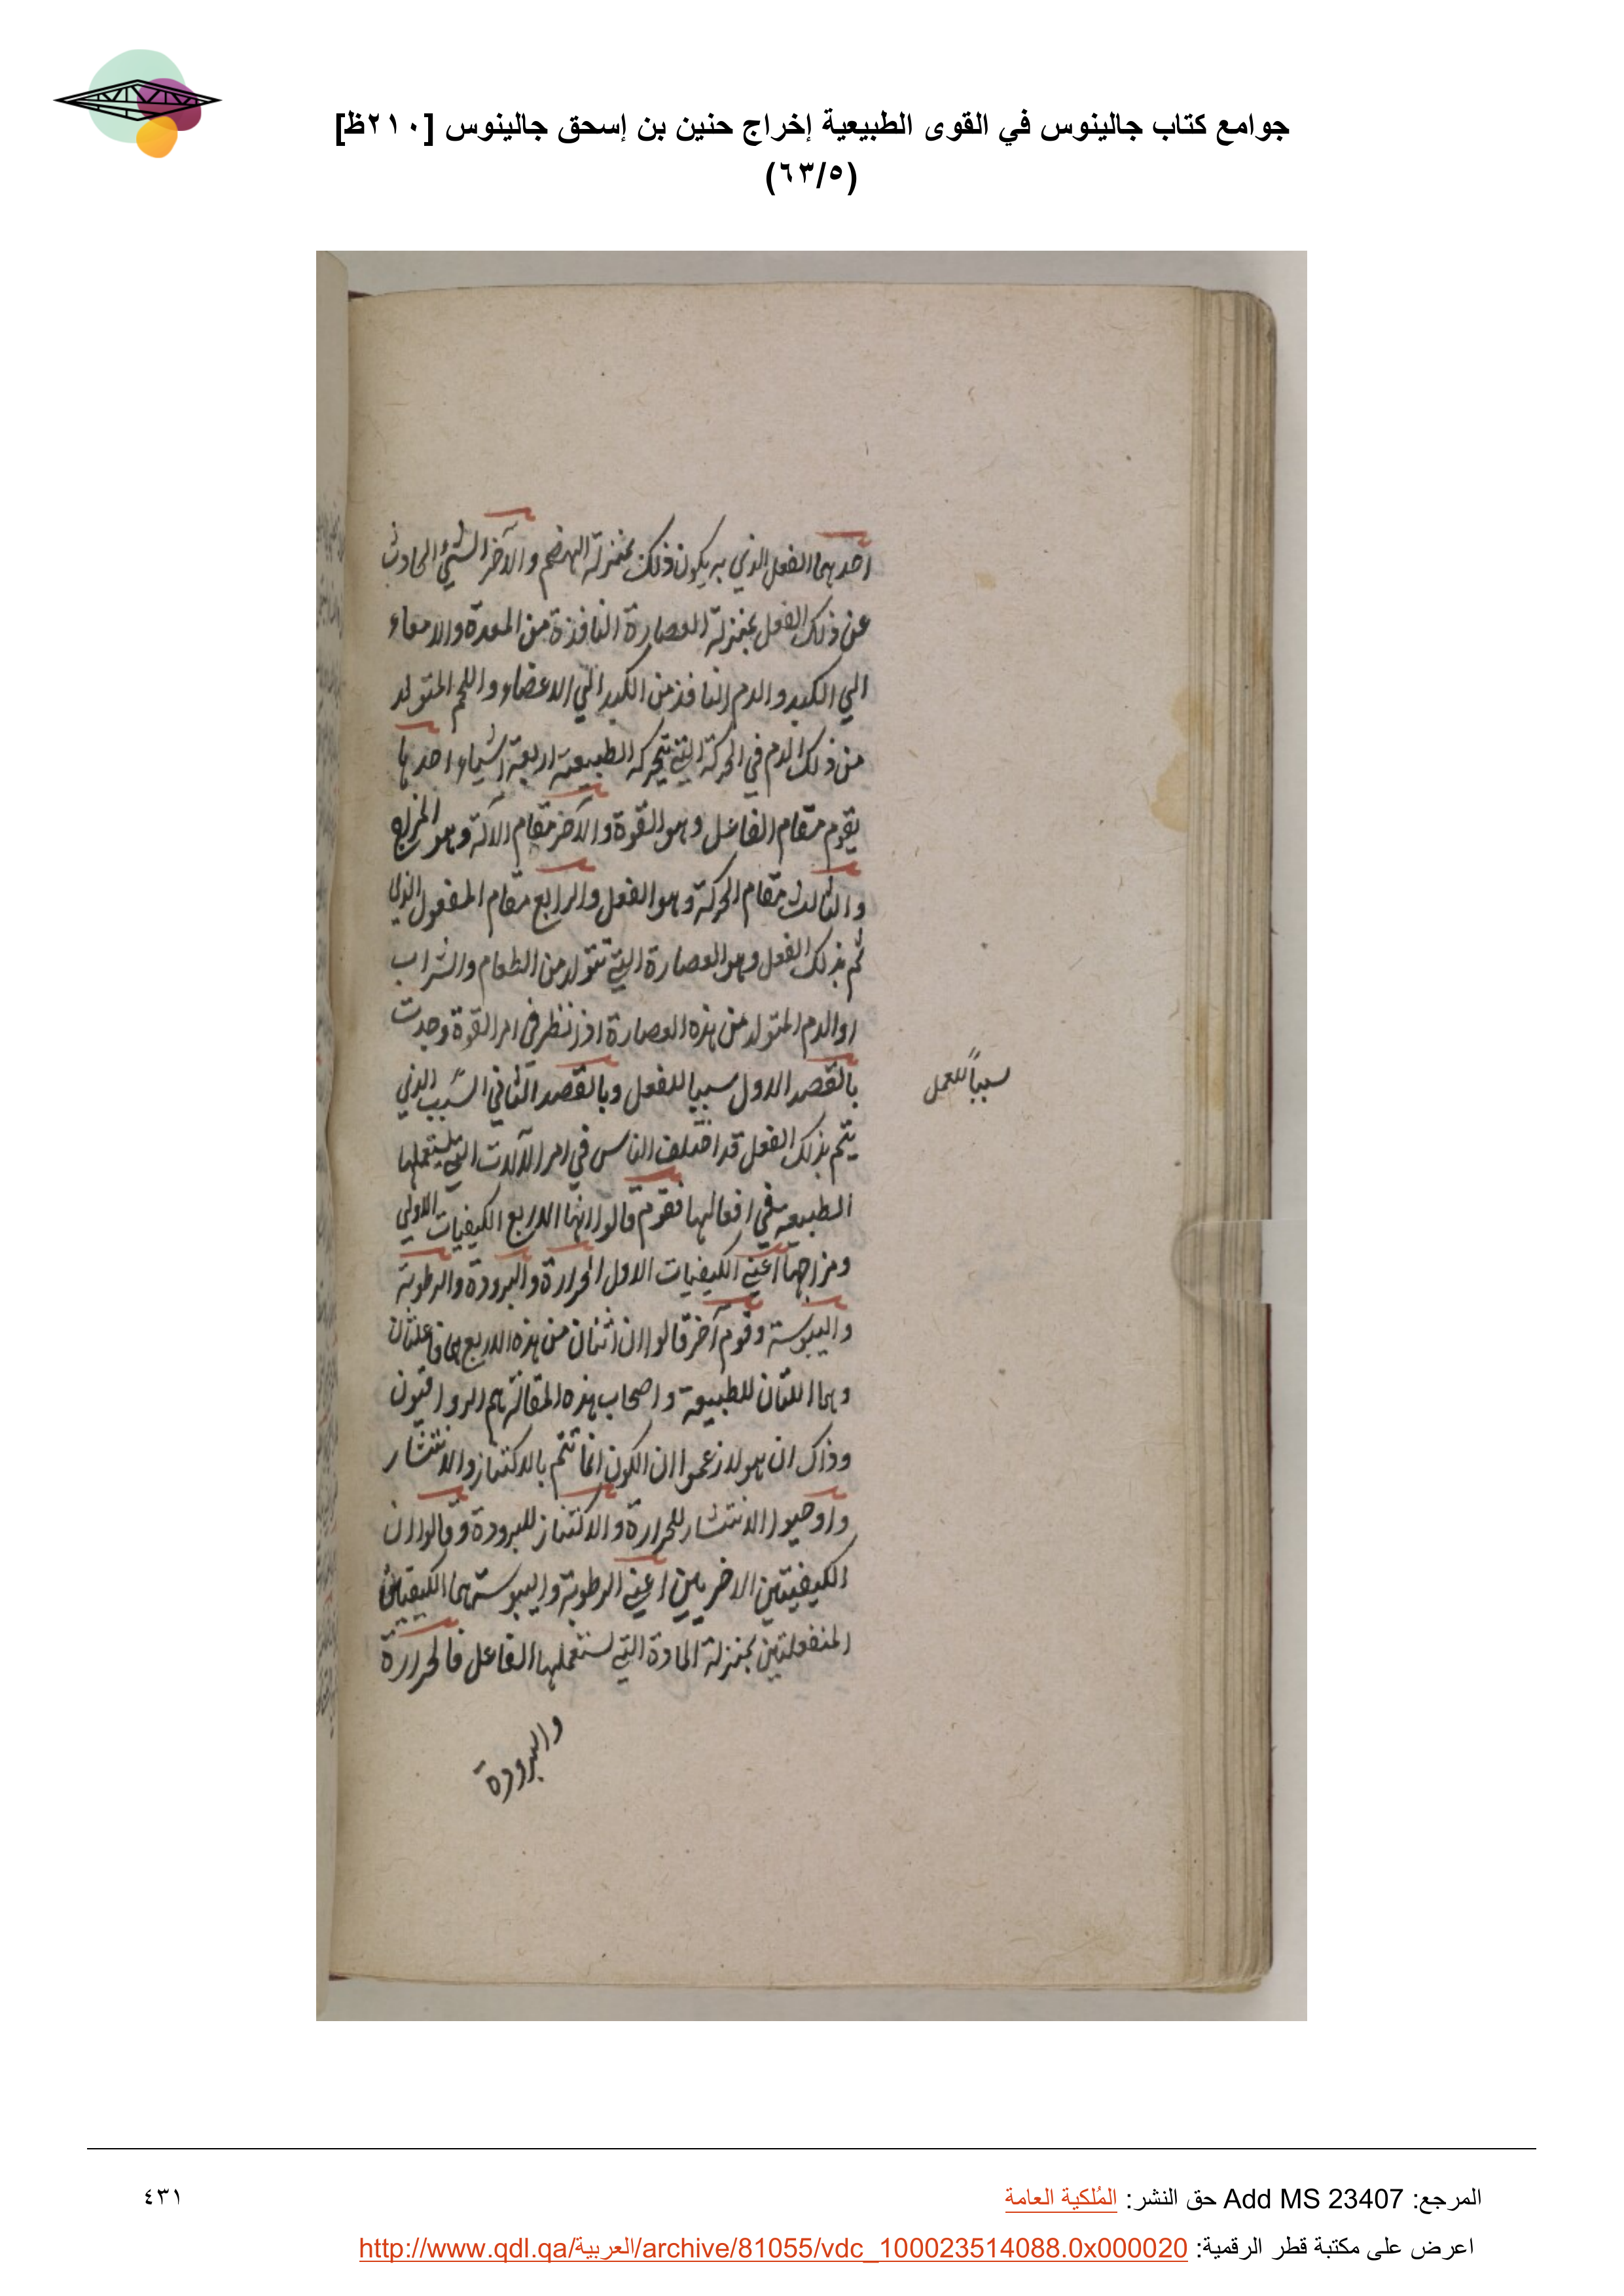 جوامع كتاب جالينوس في القوى الطبيعية إخراج حنين بن إسحق جالينوس [٢١٠ظ]
(٦٣/٥)
احدهما الفعل الذي به يكون ذلك بمنزلة الهضم والآخر الشيء الحادث
عن ذلك الفعل بمنزلة العصارة النافذة من المعدة والامعاء
الي الكبد والدم النافذ من الكبد الي الاعضاء واللحم المتولد
من ذلك الدم في الحركة التي تتحركه الطبيعة اربعة اشياء احدها
يقوم مقام الفاعل وهو القوة والآخر مقام الآلة وهو المزاج
والثالث مقام الحركة وهو الفعل والرابع مقام المفعول الذي
ثم بذلك الفعل وهو العصارة التي تتولد من الطعام والشراب
او الدم المتولد من هذه العصارة اذا نظر في امر القوة وجدت
بالقصد الاول سببا للفعل وبالقصد الثاني السبب الذي
سبباً للعمل
يتم بذلك الفعل قد اختلف الناس في امر الآلات التي يستعملها
الطبيعة في افعالها فقوم قالوا انها الاربع الكيفيات الاولي
ومزاجها اعني الكيفيات الاول الحرارة والبرودة والرطوبة
واليبوسة وقوم آخر قالوا ان اثنان من هذه الاربع هما فاعلتان
وهما اللتان للطبيعة واصحاب هذه المقالة هم الرواقيون
وذاك ان هولاء زعموا ان الكون انما تتم بالاكتناز والانتشار
واوجبوا الانتشار للحرارة والاكتناز للبرودة وقالوا ان
الكيفيتين الاخريين اعني الرطوبة واليبوسة هما الكيفيتان
المنفعلتين بمنزلة المادة التي تستعملها الفاعل فالحرارة
والبرودة
المرجع: Add MS 23407 حق النشر: المُلكية العامة
٤٣١
اعرض على مكتبة قطر الرقمية: http://www.qdl.qa/العربية/archive/81055/vdc_100023514088.0x000020